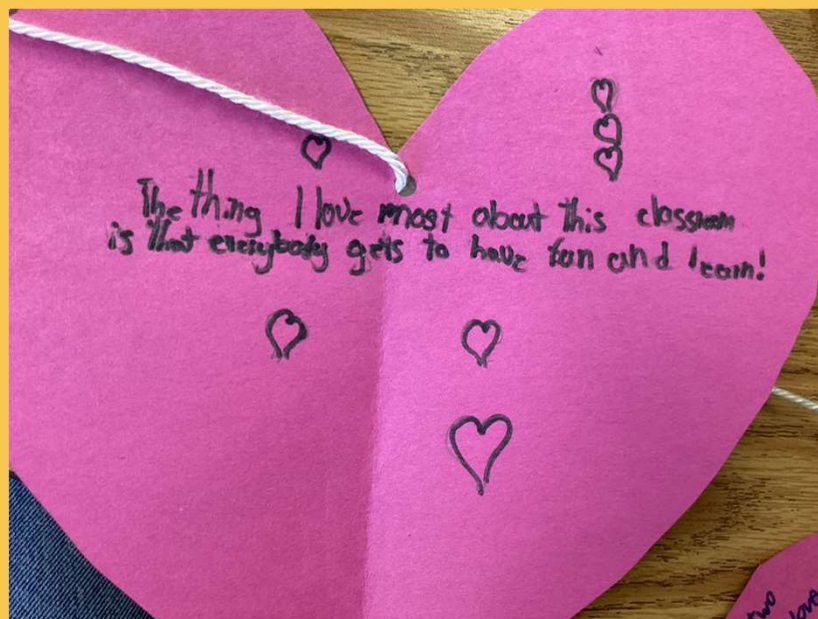 The thing I love most about this classroom
is that everybody gets to have fun and learn!
two
love